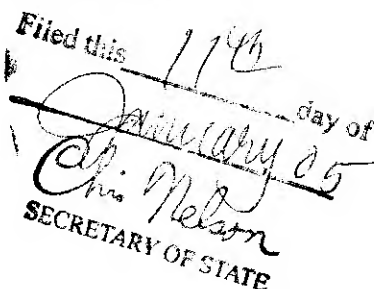 Filed this 11th day of
January 05
Chris Nelson
SECRETARY OF STATE